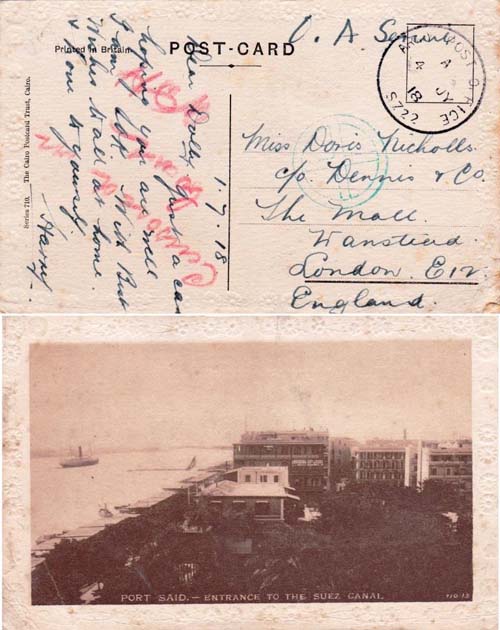 O. A. S.
Printed in Britain
POST-CARD
ARMY POST OFFICE
A
4 JY
18
SZ22
Series 710. The Cairo Postcard Trust, Cairo.
1.7.18
Dear Dolly, Just a card
hoping you are well
I am OK. With Best
Wishes to all at home
& Love to yourself
Harry.
Miss Doris Nicholls.
c/o Dennis & Co.
The Mall.
Wanstead
London. E12.
England.
PORT SAID. — ENTRANCE TO THE SUEZ CANAL
710.13